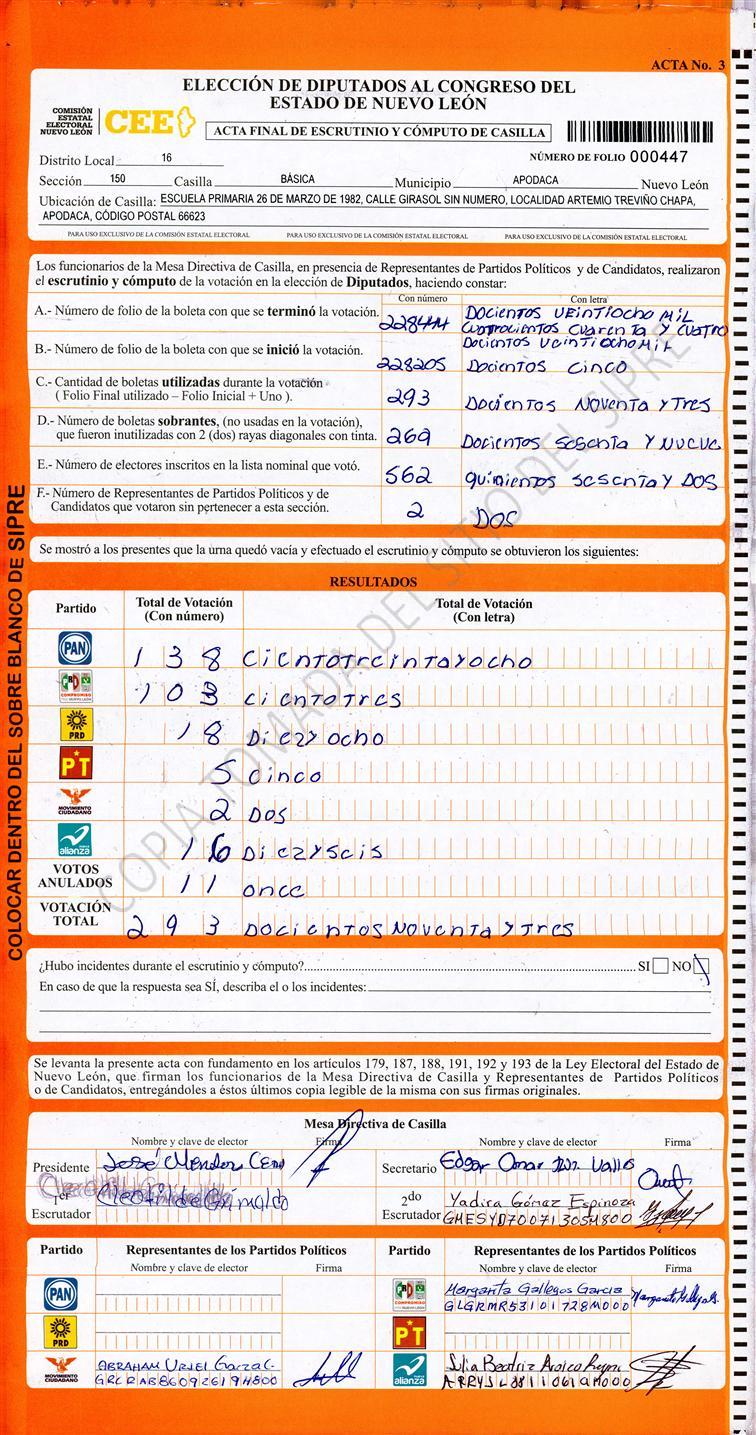 ACTA No. 3
ELECCIÓN DE DIPUTADOS AL CONGRESO DEL
ESTADO DE NUEVO LEÓN
COMISIÓN
ESTATAL
ELECTORAL
NUEVO LEÓN
CEE
ACTA FINAL DE ESCRUTINIO Y CÓMPUTO DE CASILLA
Distrito Local 16
NÚMERO DE FOLIO 000447
Sección 150 Casilla BÁSICA Municipio APODACA Nuevo León
Ubicación de Casilla: ESCUELA PRIMARIA 26 DE MARZO DE 1982, CALLE GIRASOL SIN NUMERO, LOCALIDAD ARTEMIO TREVIÑO CHAPA,
APODACA, CÓDIGO POSTAL 66623
PARA USO EXCLUSIVO DE LA COMISIÓN ESTATAL ELECTORAL PARA USO EXCLUSIVO DE LA COMISIÓN ESTATAL ELECTORAL PARA USO EXCLUSIVO DE LA COMISIÓN ESTATAL ELECTORAL
Los funcionarios de la Mesa Directiva de Casilla, en presencia de Representantes de Partidos Políticos y de Candidatos, realizaron
el escrutinio y cómputo de la votación en la elección de Diputados, haciendo constar:
Con número Con letra
A.- Número de folio de la boleta con que se terminó la votación. 228444 DOCIENTOS VEINTIOCHO MIL
CUATROCIENTOS CUARENTA Y CUATRO
B.- Número de folio de la boleta con que se inició la votación. 228205 DOCIENTOS VEINTIOCHO MIL
DOCIENTOS CINCO
C.- Cantidad de boletas utilizadas durante la votación
( Folio Final utilizado – Folio Inicial + Uno ). 293 DOCIENTOS NOVENTA Y TRES
D.- Número de boletas sobrantes, (no usadas en la votación),
que fueron inutilizadas con 2 (dos) rayas diagonales con tinta. 269 DOCIENTAS SESENTA Y NUEVE
E.- Número de electores inscritos en la lista nominal que votó. 562 QUINIENTOS SESENTA Y DOS
F.- Número de Representantes de Partidos Políticos y de
Candidatos que votaron sin pertenecer a esta sección. 2 DOS
Se mostró a los presentes que la urna quedó vacía y efectuado el escrutinio y cómputo se obtuvieron los siguientes:
RESULTADOS
Partido Total de Votación (Con número) Total de Votación (Con letra)
PAN 138 CIENTOTREINTAYOCHO
PRD COMPROMISO 103 CIENTOTRES
PRD 18 DIEZYOCHO
PT 5 CINCO
MOVIMIENTO CIUDADANO 2 DOS
nueva alianza 16 DIEZYSEIS
VOTOS ANULADOS 11 ONCE
VOTACIÓN TOTAL 293 DOCIENTOS NOVENTA Y TRES
¿Hubo incidentes durante el escrutinio y cómputo? SI NO
En caso de que la respuesta sea SÍ, describa el o los incidentes:
Se levanta la presente acta con fundamento en los artículos 179, 187, 188, 191, 192 y 193 de la Ley Electoral del Estado de
Nuevo León, que firman los funcionarios de la Mesa Directiva de Casilla y Representantes de Partidos Políticos
o de Candidatos, entregándoles a éstos últimos copia legible de la misma con sus firmas originales.
Mesa Directiva de Casilla
Nombre y clave de elector Firma Nombre y clave de elector Firma
Presidente José Mendez Secretario Edgar Omar
1er
Escrutador Cleofilde Grimaldo 2do
Escrutador Yadira Gómez Espinoza
GMESYD70071305M800
Partido Representantes de los Partidos Políticos Partido Representantes de los Partidos Políticos
Nombre y clave de elector Firma Nombre y clave de elector Firma
PAN COMPROMISO Margarita Gallegos Garcia
GLGRMR53101728M000
PRD PT
MOVIMIENTO CIUDADANO ABRAHAM URIEL Garza G.
GRCRAB86092619H800
nueva alianza Julia Beatriz
COLOCAR DENTRO DEL SOBRE BLANCO DE SIPRE
COPIA TOMADA DEL SITIO DEL SIPRE